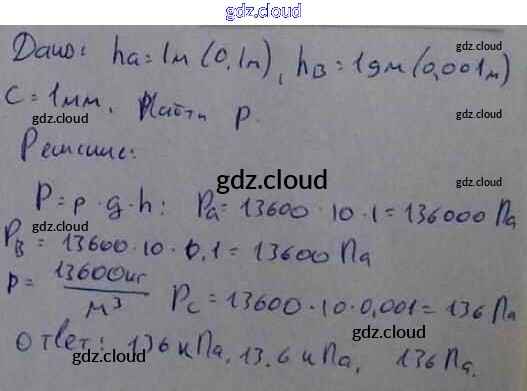 gdz.cloud
Дано: ha = 1м (0,1м), hB = 1дм (0,001м)
gdz.cloud
C = 1мм. Найти p.
gdz.cloud
gdz.cloud
Решение:
gdz.cloud
gdz.cloud
P = p · g · h: Pa = 13600 · 10 · 1 = 136000 Па
gdz.cloud
PB = 13600 · 10 · 0,1 = 13600 Па
gdz.cloud
p = 13600кг/м³ Pc = 13600 · 10 · 0,001 = 136 Па
gdz.cloud
gdz.cloud
Ответ: 136 кПа, 13,6 кПа, 136 Па.
gdz.cloud